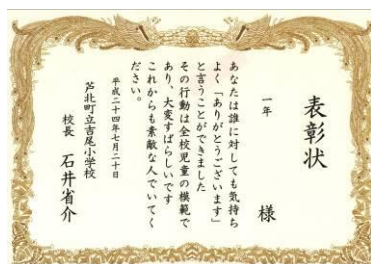 表彰状
一年 様
あなたは誰に対しても気持ち
よく「ありがとうございます」
と言うことができました
その行動は全校児童の模範で
あり、大変すばらしいです
これからも素敵な人でいてく
ださい。
平成二十四年七月二十日
芦北町立吉尾小学校
校長 石井省介